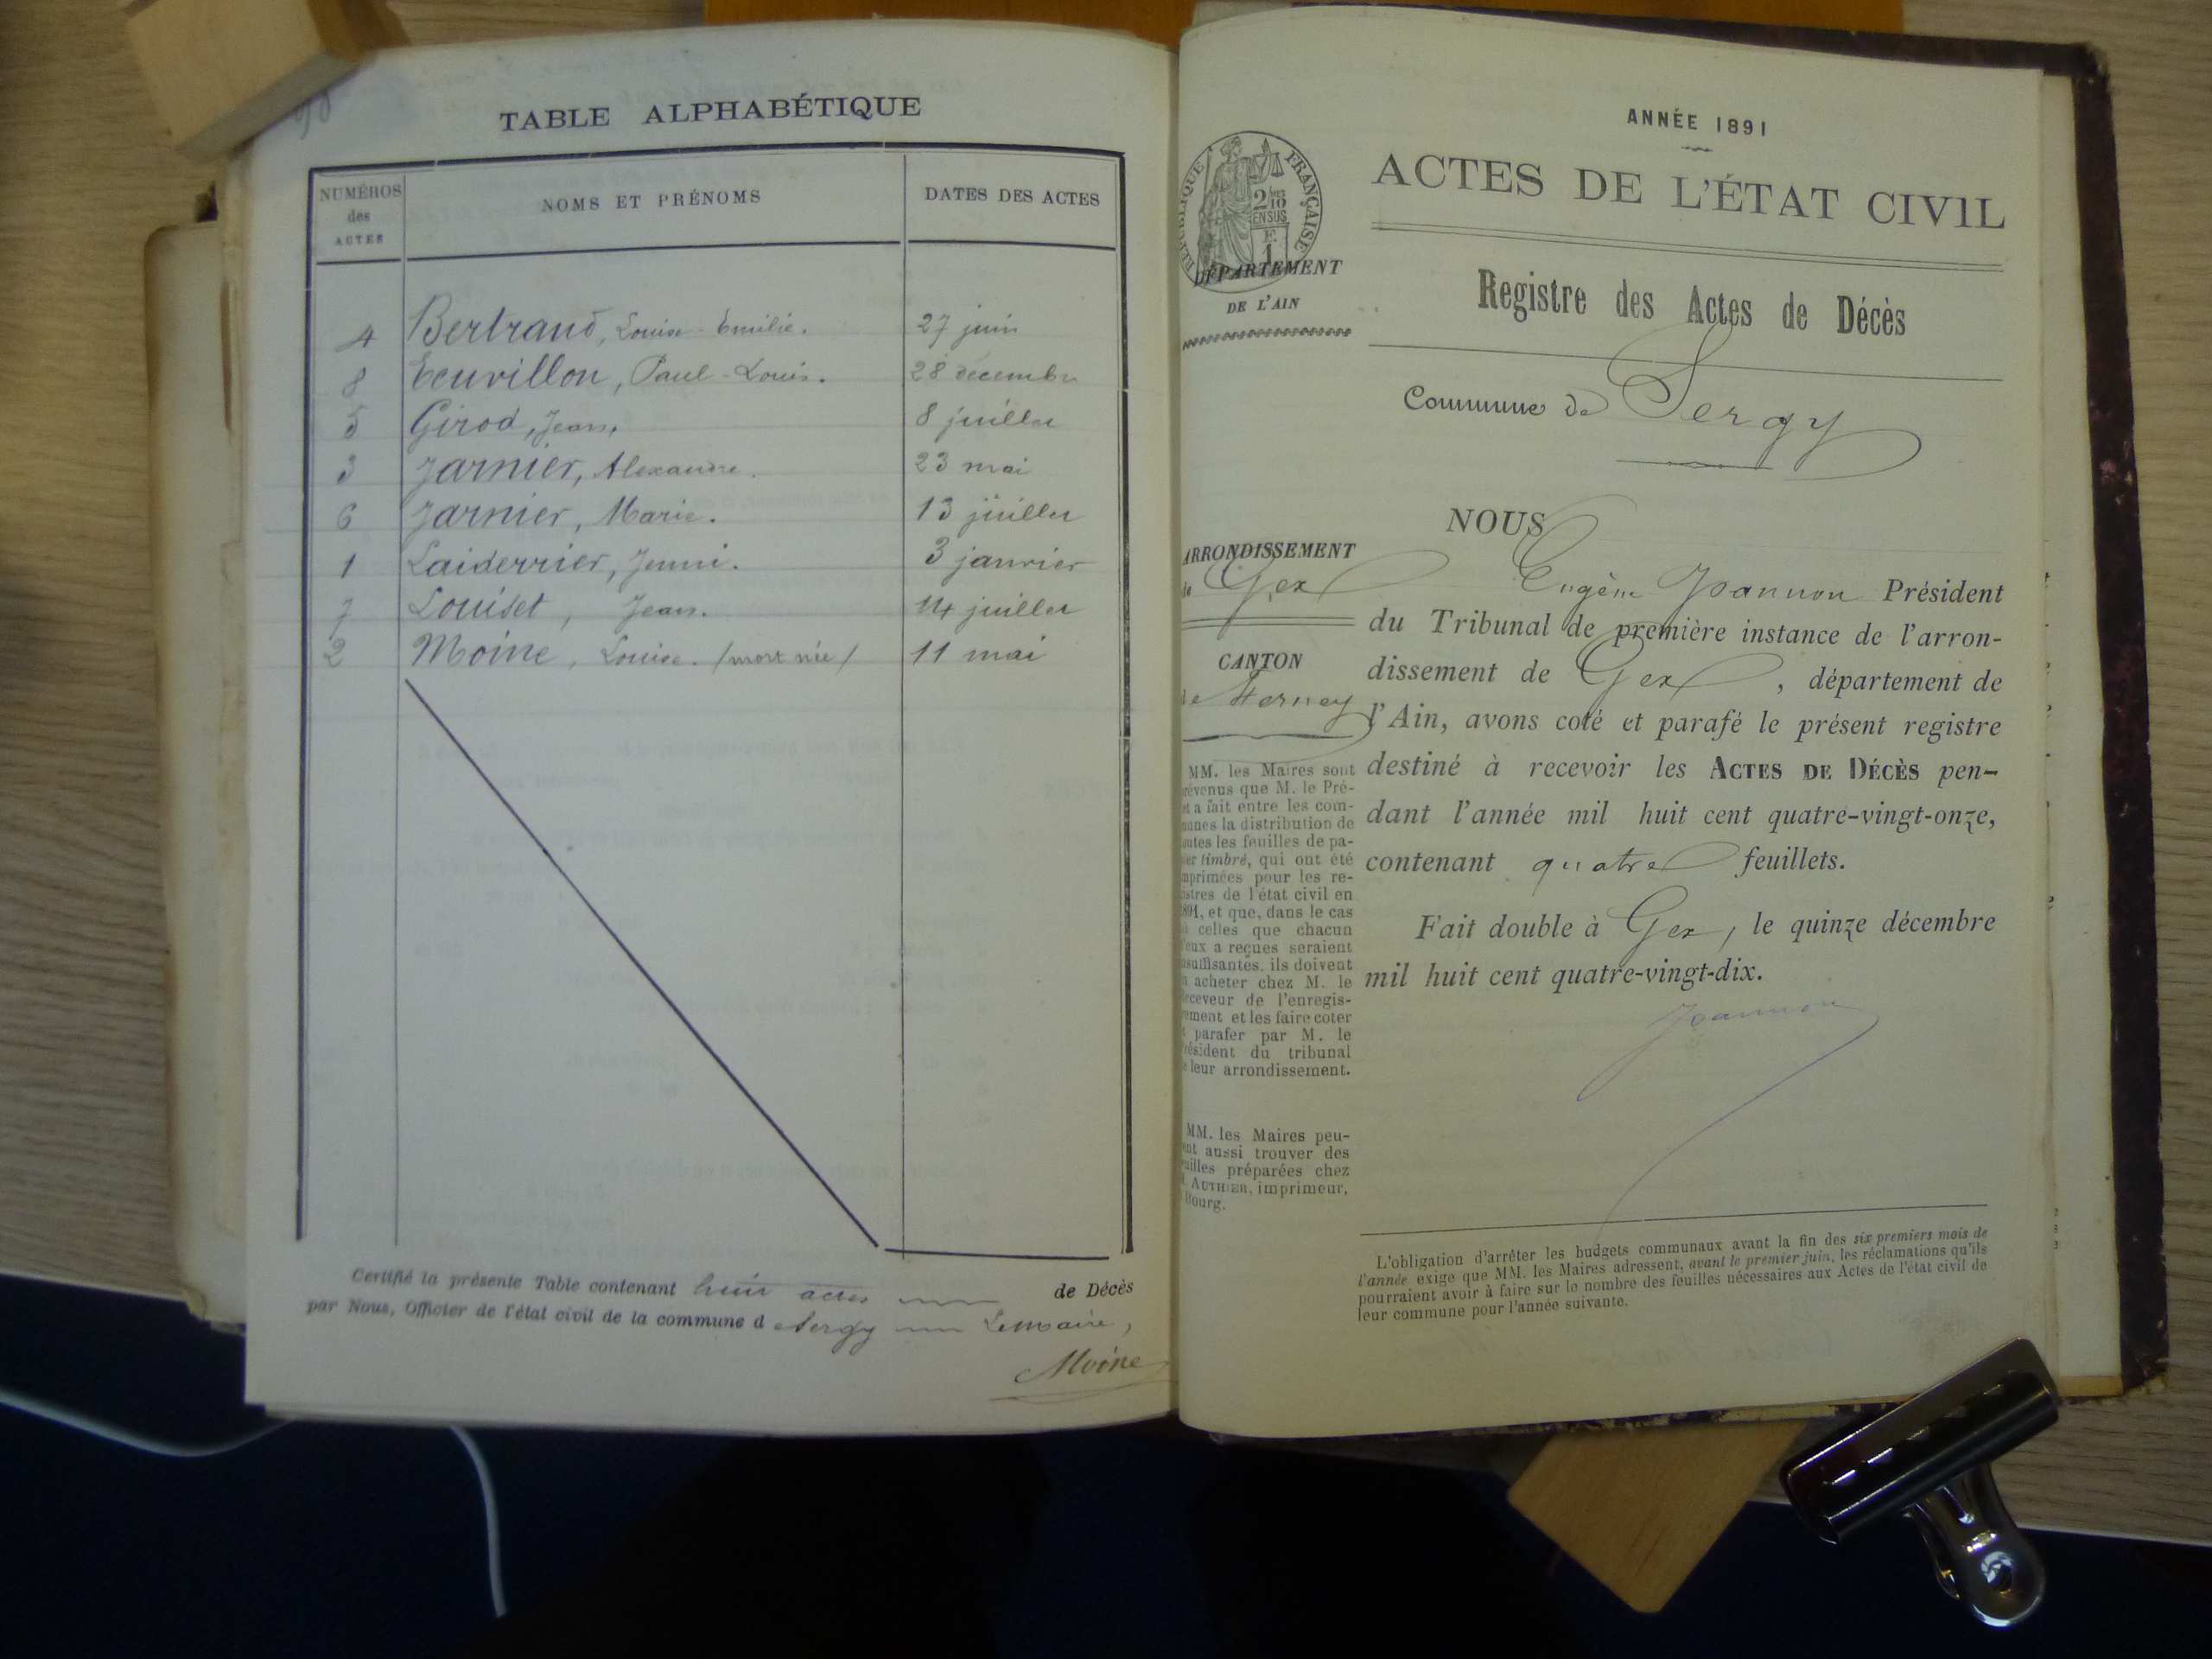 TABLE ALPHABÉTIQUE
NUMÉROS des ACTES NOMS ET PRÉNOMS DATES DES ACTES
4 Bertrand, Louise-Emilie. 27 juin
8 Ecuvillon, Paul-Louis. 28 décembre
5 Girod, Jean, 8 juillet
3 Jarnier, Alexandre. 23 mai
6 Jarnier, Marie. 13 juillet
1 Laiderrier, Jenni. 3 janvier
7 Louiset, Jean. 14 juillet
2 Moine, Louise. /mort née/ 11 mai
Certifié la présente Table contenant huit actes de Décès
par Nous, Officier de l'état civil de la commune d e Sergy Le maire,
Moine
ANNÉE 1891
ACTES DE L'ÉTAT CIVIL
RÉPUBLIQUE FRANÇAISE
2/10
EN SUS
DÉPARTEMENT
DE L'AIN
Registre des Actes de Décès
Commune de Sergy
ARRONDISSEMENT
de Gex
CANTON
de Ferney
MM. les Maires sont
prévenus que M. le Pré-
fet a fait entre les com-
munes la distribution de
toutes les feuilles de pa-
pier timbré, qui ont été
imprimées pour les re-
gistres de l'état civil en
1891, et que, dans le cas
où celles que chacun
d'eux a reçues seraient
insuffisantes, ils doivent
en acheter chez M. le
Receveur de l'enregis-
trement et les faire coter
et parafer par M. le
Président du tribunal
de leur arrondissement.
MM. les Maires peu-
vent aussi trouver des
feuilles préparées chez
M. AUTHIER, imprimeur,
Bourg.
NOUS
Eugène Joannon Président
du Tribunal de première instance de l'arron-
dissement de Gex, département de
l'Ain, avons coté et parafé le présent registre
destiné à recevoir les ACTES DE DÉCÈS pen-
dant l'année mil huit cent quatre-vingt-onze,
contenant quatre feuillets.
Fait double à Gex, le quinze décembre
mil huit cent quatre-vingt-dix.
Joannon
L'obligation d'arrêter les budgets communaux avant la fin des six premiers mois de
l'année exige que MM. les Maires adressent, avant le premier juin, les réclamations qu'ils
pourraient avoir à faire sur le nombre des feuilles nécessaires aux Actes de l'état civil de
leur commune pour l'année suivante.